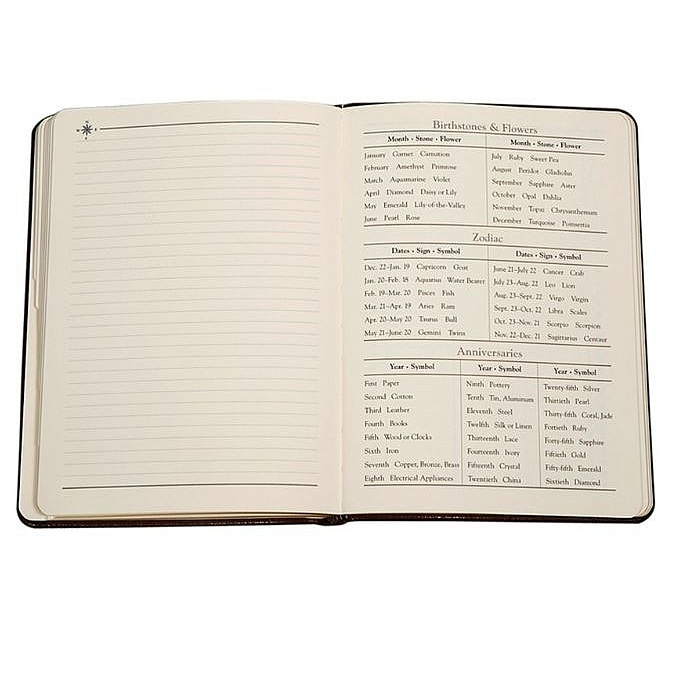 Birthstones & Flowers
Month • Stone • Flower
January Garnet Carnation
February Amethyst Primrose
March Aquamarine Violet
April Diamond Daisy or Lily
May Emerald Lily-of-the-Valley
June Pearl Rose
Month • Stone • Flower
July Ruby Sweet Pea
August Peridot Gladiolus
September Sapphire Aster
October Opal Dahlia
November Topaz Chrysanthemum
December Turquoise Poinsettia
Zodiac
Dates • Sign • Symbol
Dec. 22–Jan. 19 Capricorn Goat
Jan. 20–Feb. 18 Aquarius Water Bearer
Feb. 19–Mar. 20 Pisces Fish
Mar. 21–Apr. 19 Aries Ram
Apr. 20–May 20 Taurus Bull
May 21–June 20 Gemini Twins
Dates • Sign • Symbol
June 21–July 22 Cancer Crab
July 23–Aug. 22 Leo Lion
Aug. 23–Sept. 22 Virgo Virgin
Sept. 23–Oct. 22 Libra Scales
Oct. 23–Nov. 21 Scorpio Scorpion
Nov. 22–Dec. 21 Sagittarius Centaur
Anniversaries
Year • Symbol
First Paper
Second Cotton
Third Leather
Fourth Books
Fifth Wood or Clocks
Sixth Iron
Seventh Copper, Bronze, Brass
Eighth Electrical Appliances
Year • Symbol
Ninth Pottery
Tenth Tin, Aluminum
Eleventh Steel
Twelfth Silk or Linen
Thirteenth Lace
Fourteenth Ivory
Fifteenth Crystal
Twentieth China
Year • Symbol
Twenty-fifth Silver
Thirtieth Pearl
Thirty-fifth Coral, Jade
Fortieth Ruby
Forty-fifth Sapphire
Fiftieth Gold
Fifty-fifth Emerald
Sixtieth Diamond